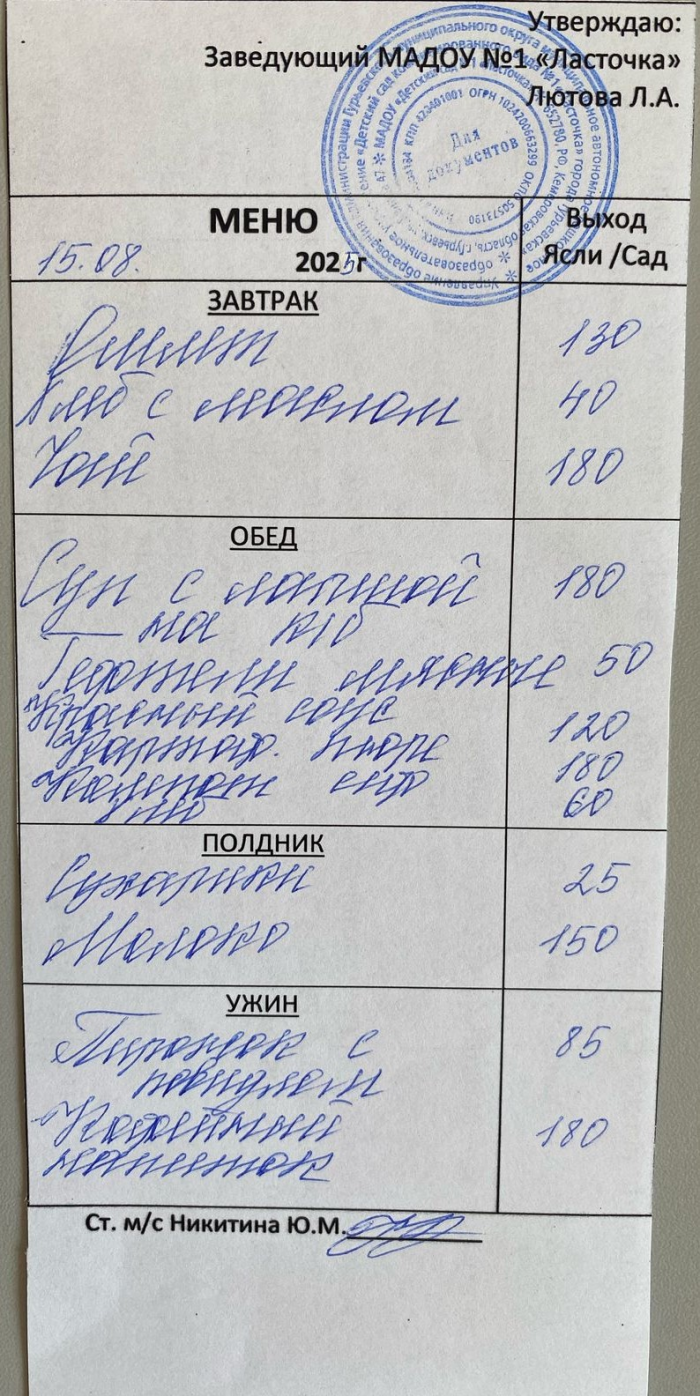 Утверждаю:
Заведующий МАДОУ №1 «Ласточка»
Лютова Л.А.
Для
документов
МЕНЮ
15.08. 2025г
Выход
Ясли /Сад
ЗАВТРАК
Омлет 130
Хлеб с маслом 40
Чай 180
ОБЕД
Суп с лапшой 180
на к/б
мясные 50
Красный соус
Картоф. пюре 120
Компот с/ф 180
Хлеб 60
ПОЛДНИК
Сухарики 25
Молоко 150
УЖИН
Пирожок с 85
повидлом
Кофейный 180
напиток
Ст. м/с Никитина Ю.М.